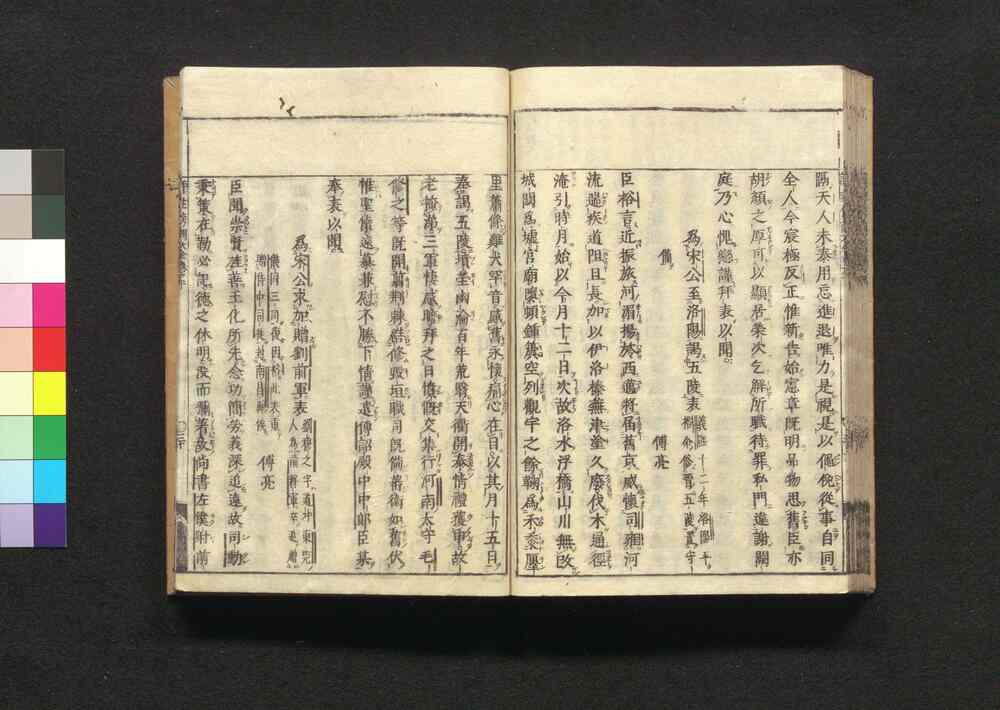 隔天人未泰用忘進退唯力是視是以僶俛從事自同
全人今宸極反正惟新告始憲章既明品物思舊臣亦
胡顏之厚可以顯居榮次乞解所職待罪私門違謝闕
庭乃心愧戀謹拜表以聞
爲宋公至洛陽謁五陵表
傅亮
臣裕言近振旅河湄揚旍西邁將屆舊京威懷司雍河
流遄疾道阻且長加以伊洛榛蕪津塗久廢伐木通徑
淹引時月始以今月十二日次故洛水浮橋山川無改
城闕爲墟宮廟隳頓鍾簴空列觀宇之餘鞠爲禾黍廛
里蕭條雞犬罕音感舊永懷痛心在目以其月十五日
奉謁五陵墳塋幽淪百年荒翳天衢開泰情禮獲申故
老掩涕三軍悽感瞻拜之日憤慨交集行河南太守毛
脩之等既開翦荊棘繕修毀垣職司既備蕃衛如舊伏
惟聖懷遠慕兼慰不勝下情謹遣傳詔殿中中郎臣某
奉表以聞
爲宋公求加贈劉前軍表
傅亮
臣聞崇賢旌善王化所先念功簡勞義深追遠故司勳
秉策在勤必記德之休明沒而彌著故尚書左僕射前